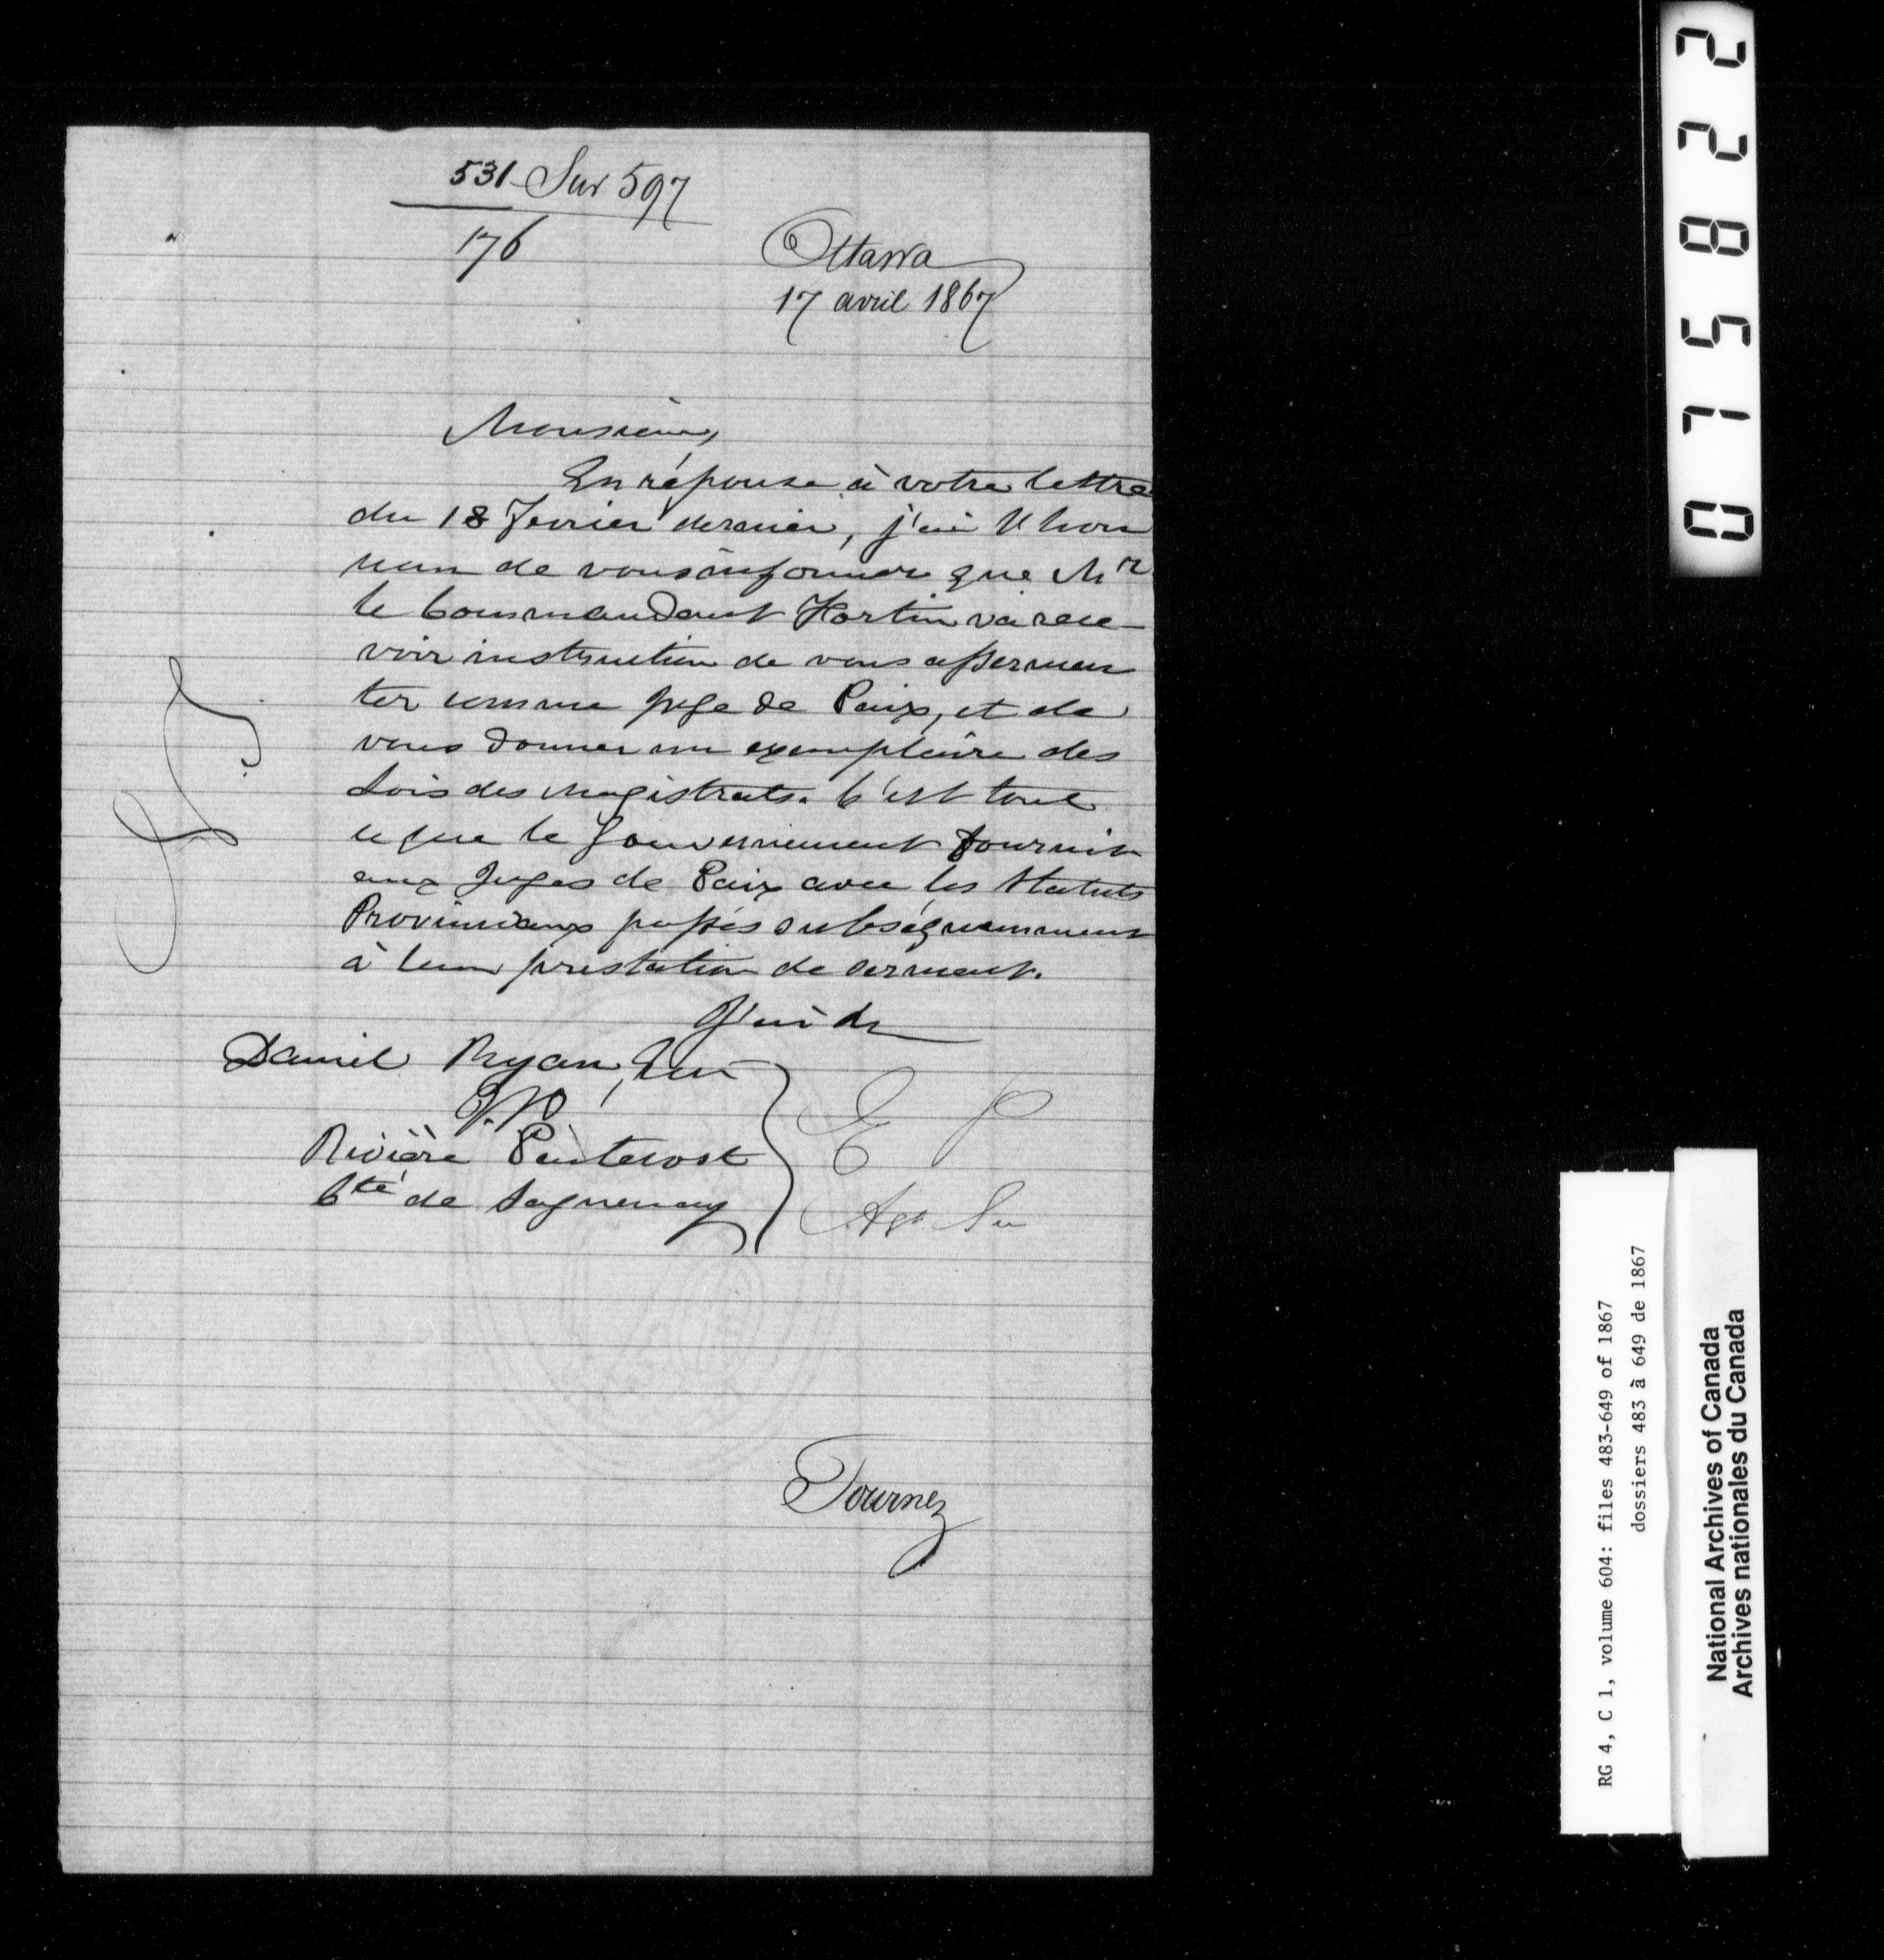 531 Sur 597
176
Ottawa
17 avril 1867
Monsieur,
En réponse à votre lettre
du 18 Fevrier dernier, j'ai l'hon
neur de vous informer que Mr
le Commandant Fortin va rece-
voir instruction de vous assermen
ter comme Juge de Paix, et de
vous donner un exemplaire des
Lois des Magistrats. C'est tout
ce que le Gouvernement fournit
aux Juges de Paix avec les Statuts
Provinciaux passés subséquemment
à leur prestation de serment.
J'ai &c
Daniel Ryan, Ecr
J.P.
Rivière Pentecost
Cté de Saguenay
E P
Ast. Se
Tournez
075822
RG 4, C 1, volume 604: files 483-649 of 1867
dossiers 483 à 649 de 1867
National Archives of Canada
Archives nationales du Canada